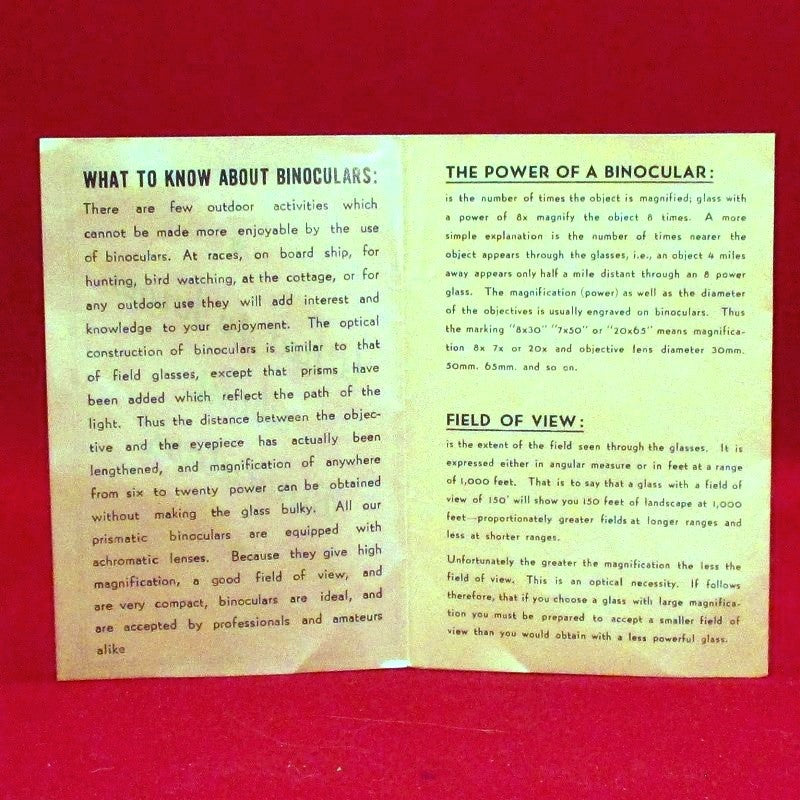 WHAT TO KNOW ABOUT BINOCULARS:
There are few outdoor activities which
cannot be made more enjoyable by the use
of binoculars. At races, on board ship, for
hunting, bird watching, at the cottage, or for
any outdoor use they will add interest and
knowledge to your enjoyment. The optical
construction of binoculars is similar to that
of field glasses, except that prisms have
been added which reflect the path of the
light. Thus the distance between the objec-
tive and the eyepiece has actually been
lengthened, and magnification of anywhere
from six to twenty power can be obtained
without making the glass bulky. All our
prismatic binoculars are equipped with
achromatic lenses. Because they give high
magnification, a good field of view, and
are very compact, binoculars are ideal, and
are accepted by professionals and amateurs
alike
THE POWER OF A BINOCULAR:
is the number of times the object is magnified; glass with
a power of 8x magnify the object 8 times. A more
simple explanation is the number of times nearer the
object appears through the glasses, i.e., an object 4 miles
away appears only half a mile distant through an 8 power
glass. The magnification (power) as well as the diameter
of the objectives is usually engraved on binoculars. Thus
the marking "8x30" "7x50" or "20x65" means magnifica-
tion 8x 7x or 20x and objective lens diameter 30mm.
50mm. 65mm. and so on.
FIELD OF VIEW:
is the extent of the field seen through the glasses. It is
expressed either in angular measure or in feet at a range
of 1,000 feet. That is to say that a glass with a field of
view of 150' will show you 150 feet of landscape at 1,000
feet—proportionately greater fields at longer ranges and
less at shorter ranges.
Unfortunately the greater the magnification the less the
field of view. This is an optical necessity. If follows
therefore, that if you choose a glass with large magnifica-
tion you must be prepared to accept a smaller field of
view than you would obtain with a less powerful glass.